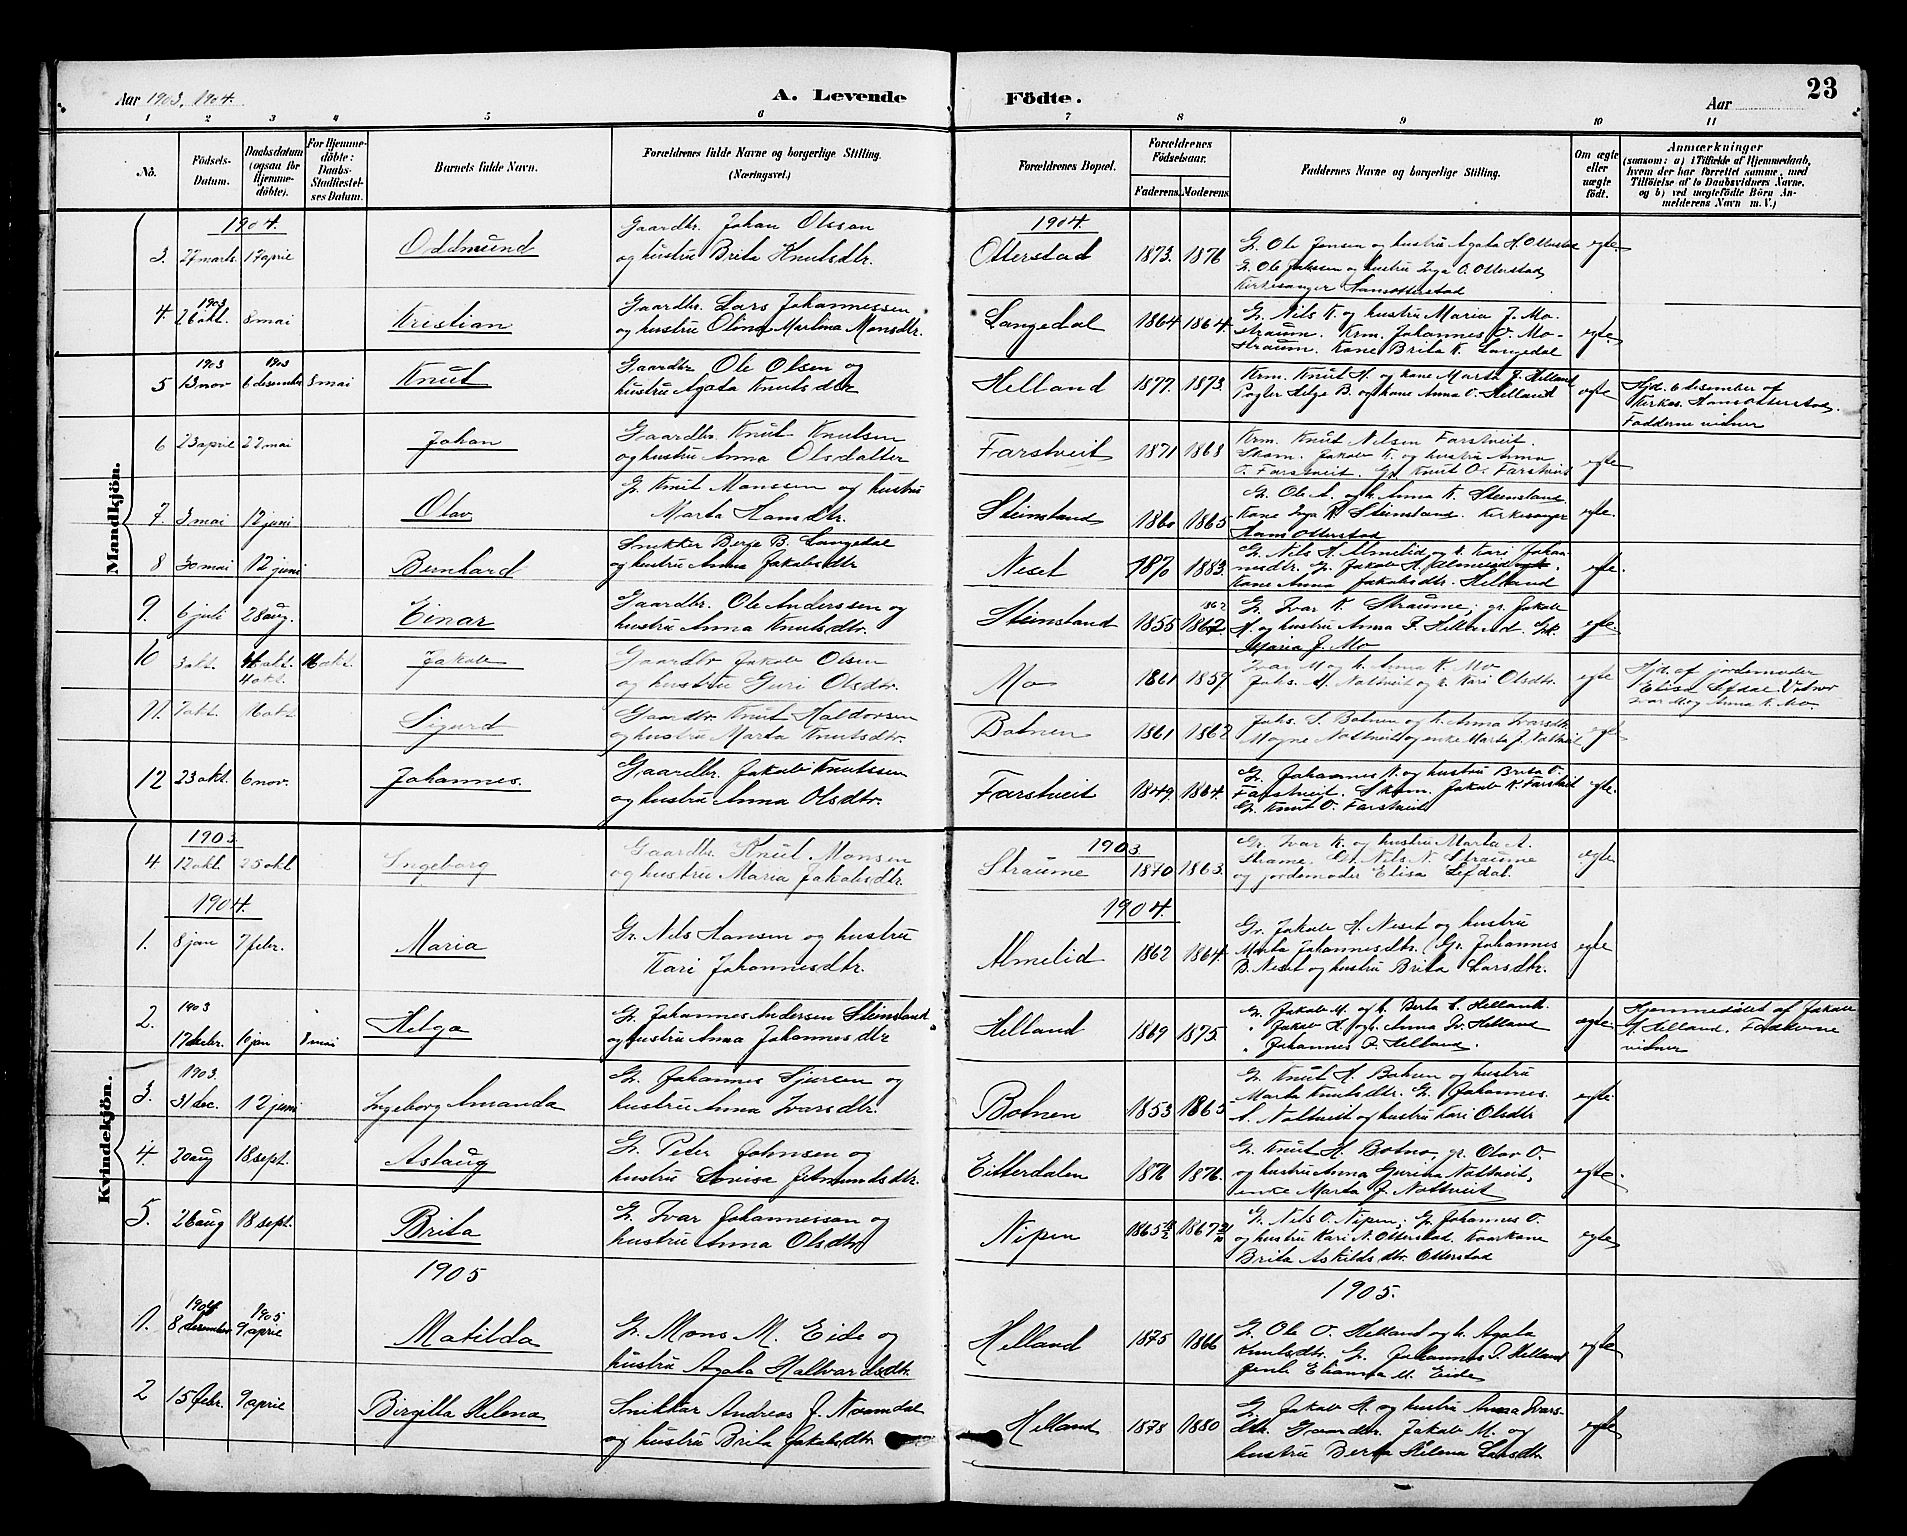 23
Aar 1903, 1904.
A. Levende Födte.
Aar
1 2 3 4 5 6 7 8 9 10 11
No.
Födsels-Datum.
Daabsdatum (ogsaa for Hjemmedöbte).
For Hjemmedöbte: Daabs-Stadfæstelses Datum.
Barnets fulde Navn.
Forældrenes fulde Navne og borgerlige Stilling. (Næringsvei.)
Forældrenes Bopæl.
Forældrenes Födselsaar.
Faderens.
Moderens.
Faddernes Navne og borgerlige Stilling.
Om ægte eller uægte födt.
Anmærkninger
(saasom: a) i Tilfælde af Hjemmedaab, hvem der har forrettet samme, med Tilföielse af to Daabsvidners Navne, og b) ved uægtefödte Börn Anmelderens Navn m. V.)
Mandkjön.
1904. 1904.
3. 27 marts 17 april Oddmund Gaardbr. Johan Olsson
og hustru Brita Knutsdtr. Otterstad 1873. 1876 G. Ole Jonsen og hustru Agata H. Otterstad egte.
G. Ole Jakssen og hustru Inga O. Otterstad,
Kirkesanger Hans Otterstad
4. 1903 26 okt. 8 mai Kristian Gaardbr. Lars Johannessen
og hustru Olina Martina Monsdtr. Langedal 1864 1864. G. Nils K. og hustru Maria J. Mo.
Straum. Krm. Johannes O. Mo- egte.
straum. Kone Brita K. Langedal
5 1903 13 nov 1903 6 desember 8 mai Knut Gaardbr Ole Olsen og
hustru Agata Knutsdtr Helland 1877. 1873. Krm. Knut H. og kone Marta J. Helland
Pogter Helge B. og kone Anna O. Helland egte
Hjd. 6 desember af
Kirkes. Hans Otterstad.
Fadderne vidner
6 23 april 22 mai Johan Gaardbr. Knut Knutsen
og hustru Anna Olsdatter Farstveit 1871 1868 Krm. Knut Nilsen Farstveit.
Skom. Jakob K. og hustru Anna
O. Farstveit. Gr Knut O. Farstveit egte
7. 3 mai 12 juni Olav G. Knut Monssen og hustru
Marta Hansdtr. Steinsland 1860 1865 G. Ole A. og h. Anna K. Steinsland
Kone Inga K. Steinsland. Kirkesanger egte.
Hans Otterstad
8 30 mai 12 juni Bernhard Snekker Berje B. Langedal
og hustru Anna Jakobsdtr Neset 1870 1883. G. Nils H. Almelid og h. Kari Johan-
nesdtr. G. Jakob H. Almelid
Kone Anna Jakobsdtr. Helland egte.
9. 6 juli 28 aug. Einar Gaardbr. Ole Anderssen og
hustru Anna Knutsdtr. Steinsland 1855 1862 1862 G. Ivar K. Straume, gr. Jakob
H. og hustru Anna I. Helland. Gk. egte.
Maria J. Mo
10 3 okt. 4 okt. 16 okt. Jakob Gaardbr Jakob Olsen
og hustru Guri Olsdtr. Mo 1861 1859 Ivar M og h. Anna K. Mo
Johs. M. Nattveit og h. Kari Olsdtr. egte
Hjd. af jordemoder
Elisa Lefdal. Vidner
Ivar M. og Anna K. Mo.
11. 7 okt. 16 okt. Sigurd Gaardbr Knut Haldorsen
og hustru Marta Knutsdtr. Botnen 1861 1862 Johs. S. Botnen og h. Anna Ivarsdtr
Mogne Nattveit og enke Marta J. Nattveit egte
12 23 okt. 6 nov. Johannes. Gaardbr. Jakob Knutssen
og hustru Anna Olsdtr. Farstveit 1849. 1864. G. Johannes K. og hustru Brita O.
Farstveit. Skom. Jakob K. Farstveit egte.
G. Knut O. Farstveit
Kvindekjön.
1903. 1903.
4. 12 okt 25 okt Ingeborg Gaardbr. Knut Monsen
og hustru Maria Jakobsdtr. Straume 1870 1863. Gr. Ivar K. og hustru Marta A.
Strame. Gr. Nils N. Straume egte
og jordemoder Elisa Lefdal.
1904. 1904.
1. 8 jan 7 febr. Maria Gr. Nils Hansen og hustru
Kari Johannesdtr. Almelid 1862 1864. Gr. Jakob H. Neset og hustru
Marta Johannesdtr. Gr. Johannes egte
B. Neset og hustru Brita Larsdtr.
2. 1903 17 desbr. 10 jan 8 mai Helga G. Johannes Andersen Steinsland
og hustru Anna Johannesdtr Helland 1869 1875. G. Jakob M. og h. Berta L. Helland.
" Jakob H. og h. Anna Iv. Helland egte.
" Johannes I. Helland.
Hjemmedöbt af Jakob
H. Helland. Fadderne
vidner
3. 1903. 31 dec. 12 juni Ingeborg Amanda G. Johannes Sjursen og
hustru Anna Ivarsdtr. Botnen 1853 1865 G. Knut H. Botnen og hustru
Marta Knutsdtr. G. Johannes. egte.
S. Nattveit og hustru Kari Olsdtr
4. 20 aug 18 sept. Aslaug G. Peter Johnsen og
hustru Lovisa Edmundsdtr. Eitterdalen 1876 1876. G. Knut H. Botno, gr. Olav O.
og hustru Anna Gurina Nattveit, egte.
enke Marta J. Nattveit
5. 26 aug 18 sept. Brita G. Ivar Johannesson og
hustru Anna Olsdtr Nipen 1865 1867 G. Nils O. Nipen; G. Johannes O.
og hustru Kari N. Otterstad. Kaarkone egte
Brita Askildsdtr. Otterstad
1905 1905.
1. 1904 8 desember 1905 9 april Matilda G. Mons M. Eide og
hustru Agata Hallvardsdtr. Helland 1875 1866 G. Ole O. Helland og h. Agata
Knutsdtr. G. Johannes I. Helland egte
gente Elianna M. Eide
2 15 febr. 9 april Birgitta Helena Snikkar Andreas J. Nvamdal
og hustru Brita Jakobsdtr Helland 1878 1880 G. Jakob H. og hustru Anna Ivars-
dtr. Gaardbr. Jakob M. og egte
hustru Berta Helena Larsdtr.